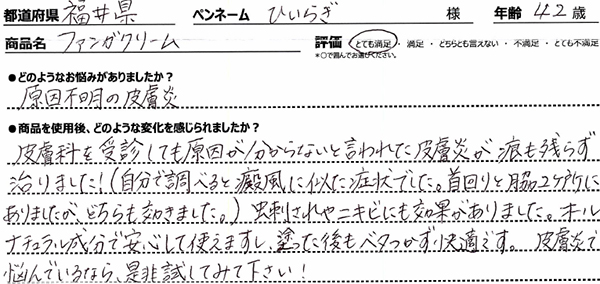 都道府県 福井県 ペンネーム ひいらぎ 様 年齢 42 歳
商品名 ファンガクリーム 評価 とても満足 ・ 満足 ・ どちらとも言えない ・ 不満足 ・ とても不満足
※○で囲んでお選びください。
●どのようなお悩みがありましたか?
原因不明の皮膚炎
●商品を使用後、どのような変化を感じられましたか?
皮膚科を受診しても原因が分からないと言われた皮膚炎が痕も残らず
治りました!(自分で調べると癜風に似た症状でした。首回りと脇の2ヶ所に
ありましたが、どちらも効きました。) 虫刺されやニキビにも効果がありました。オール
ナチュラル成分で安心して使えますし、塗った後もベタつかず快適です。 皮膚炎で
悩んでいるなら、是非試してみて下さい!